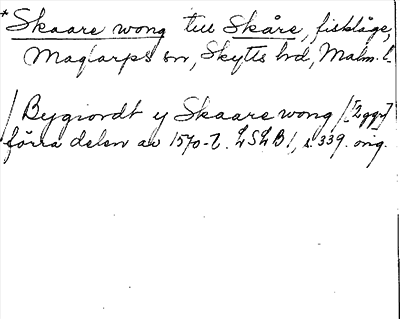 *Skaare wong till Skåre, fiskläge,
Maglarps sn, Skytts hd, Malm. l.
/Bygiordt y Skaare wong/ [2 ggr]
förra delen av 1570-t. LSLB 1, s. 339. orig.